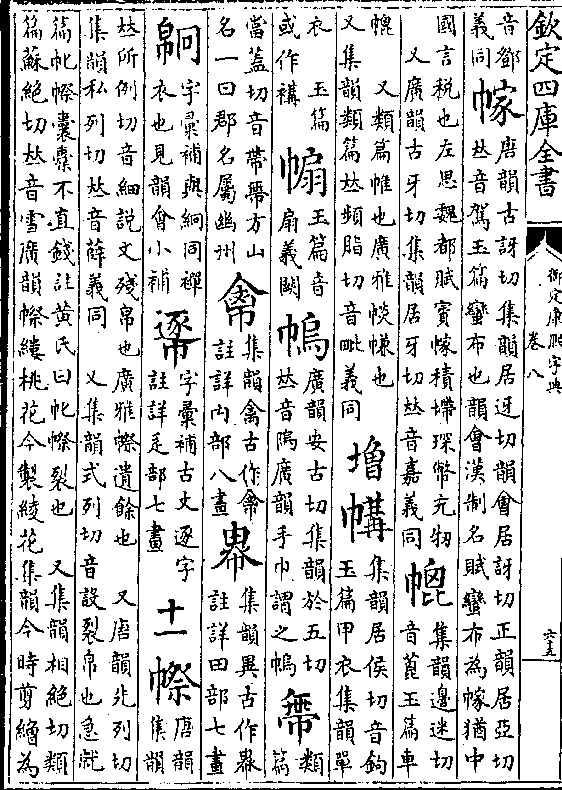 欽定四庫全書
御定康熙字典
卷八
音鄒
義同
幏
唐韻古訝切集韻居迓切韻會居訝切正韻居亞切
𠀤音駕玉篇蠻布也韻會漢制名賦蠻布為幏猶中
國言税也左思魏都賦賨幏積墆琛幣充牣
又廣韻古牙切集韻居牙切𠀤音嘉義同
集韻邊迷切
音蓖玉篇車
又類篇帷也廣雅也
又集韻類篇𠀤頻脂切音毗義同
增
集韻居侯切音鉤
玉篇甲衣集韻單
衣 玉篇
或作褠
玉篇音
扇義闕
廣韻安古切集韻於五切
𠀤音隖廣韻手巾謂之
類
篇
當蓋切音帶方山
名一曰郡名屬幽州
集韻禽古作
註詳禸部八畫
集韻異古作
註詳田部七畫
字彙補與絅同襌
衣也見韻會小補
字彙補古文逐字
註詳辵部七畫
十一
㡜
唐韻
集韻
𠀤所例切音細説文殘帛也廣雅㡜遺餘也 又唐韻此列切
集韻私列切𠀤音薛義同 又集韻式列切音設裂帛也急就
篇㡜囊橐不直錢註黃氏曰㡜裂也 又集韻相絕切類
篇蘇絕切𠀤音雪廣韻㡜縷桃花今製綾花集韻今時剪繒為